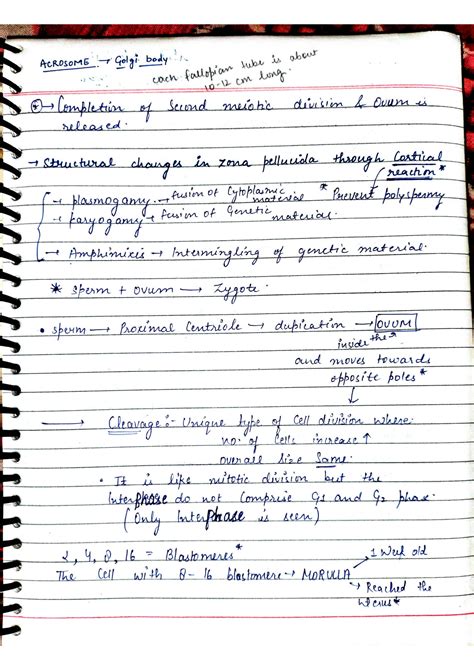 ACROSOME → Golgi body
each fallopian tube is about
10-12 cm long.
* → Completion of Second meiotic division & Ovum is
released.
→ Structural changes in zona pellucida through Cortical
reaction*
→ plasmogamy → fusion of Cytoplasmic material
* Prevent polyspermy
→ karyogamy → fusion of Genetic material.
→ Amphimixis → Intermingling of genetic material.
* Sperm + Ovum → Zygote.
• Sperm → Proximal Centriole → duplication → OVUM
inside the
and moves towards
opposite poles*
→ Cleavage :- Unique type of Cell division where
no. of Cells increase ↑
overall size Same.
• It is like mitotic division but the
Interphase do not Comprise G1 and G2 phase.
(Only Interphase is seen)
2, 4, 8, 16 = Blastomeres*
1 Week old
The Cell with 8-16 blastomere → MORULLA
→ Reached the
Uterus*